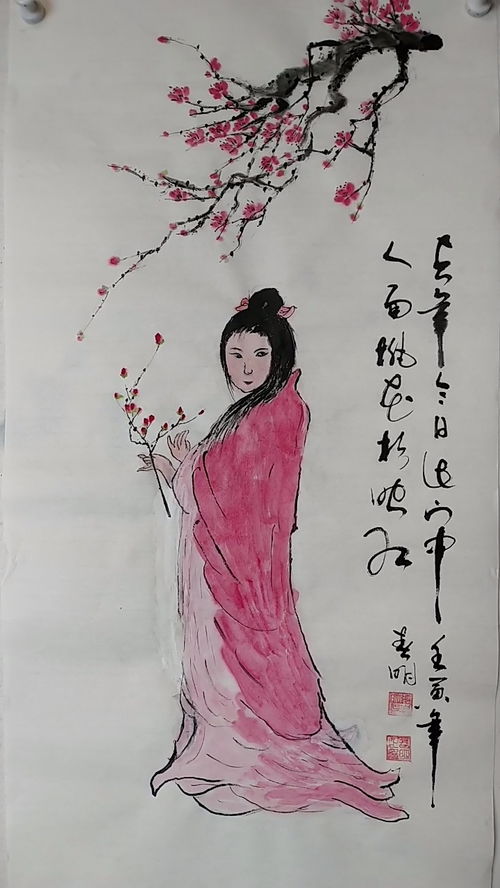 去年今日此门中 壬寅年
人面桃花相映红
春明